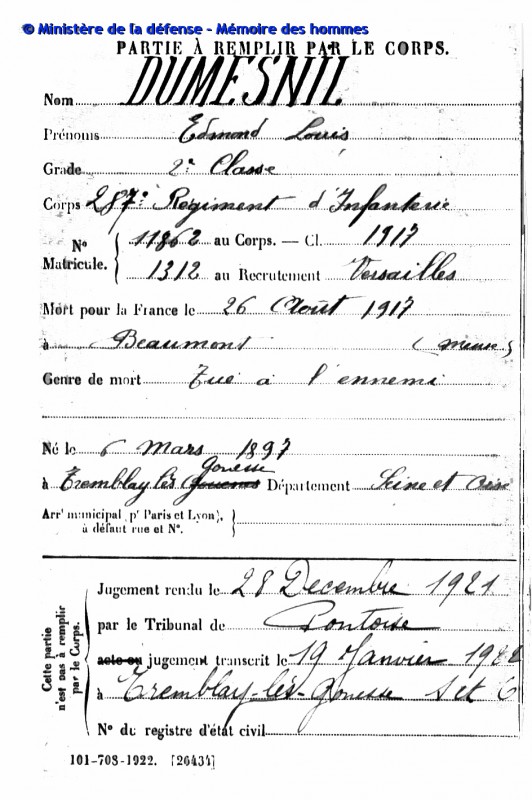 © Ministère de la défense - Mémoire des hommes
PARTIE À REMPLIR PAR LE CORPS.
Nom DUMESNIL
Prénoms Edmond Louis
Grade 2e Classe
Corps 287e Régiment d'Infanterie
N° Matricule. 11862 au Corps. — Cl. 1917
1312 au Recrutement Versailles
Mort pour la France le 26 Août 1917
à Beaumont (Meuse)
Genre de mort Tué à l'ennemi
Né le 6 Mars 1897
à Tremblay lès Gonesse Département Seine et Oise
Arr' municipal (p' Paris et Lyon),
à défaut rue et N°.
Cette partie n'est pas à remplir par le Corps.
Jugement rendu le 28 Decembre 1921
par le Tribunal de Pontoise
acte ou jugement transcrit le 19 Janvier 1922
à Tremblay-lès-Gonesse S et O
N° du registre d'état civil
101-708-1922. [26434]